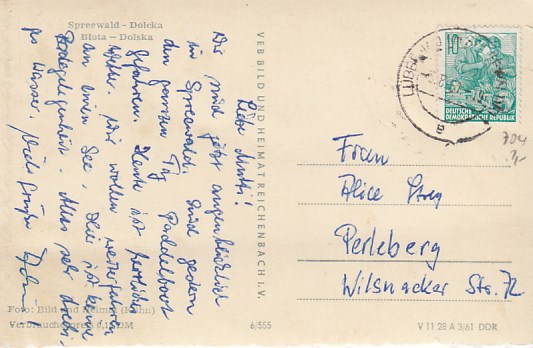 Spreewald - Dolcka
Błota - Dolska
Liebe Mutti!
Wir sind jetzt augenblicklich
im Spreewald. Sind gestern
den ganzen Tag Paddelboot
gefahren. Heute ist herrliches
Wetter. Wir wollen weiterfahren
an einen See. Hier ist keine
Badegelegenheit. Alles sehr dreckig
das Wasser. Viele Grüße
VEB BILD UND HEIMAT REICHENBACH I. V.
Foto: Bild und Heimat (Kühn)
Verbraucherpreis 0,15 DM
6/555
10
DEUTSCHE
DEMOKRATISCHE REPUBLIK
704
Frau
Alice
Perleberg
Wilsnacker Str. 72
V 11 28 A 3/61 DDR